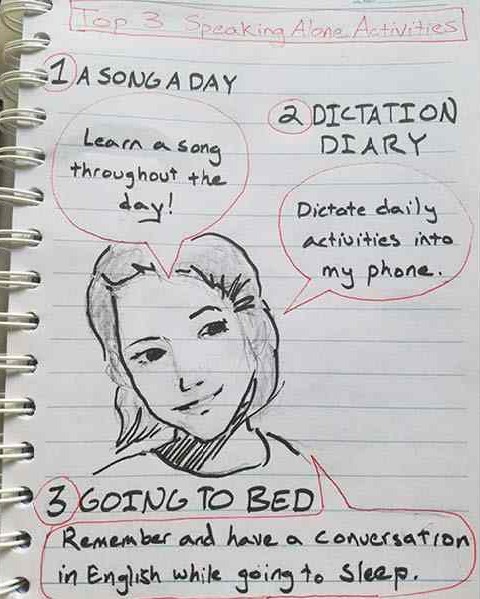 Top 3 Speaking Alone Activities
1 A SONG A DAY
Learn a song
throughout the
day!
2 DICTATION
DIARY
Dictate daily
activities into
my phone.
3 GOING TO BED
Remember and have a conversation
in English while going to sleep.